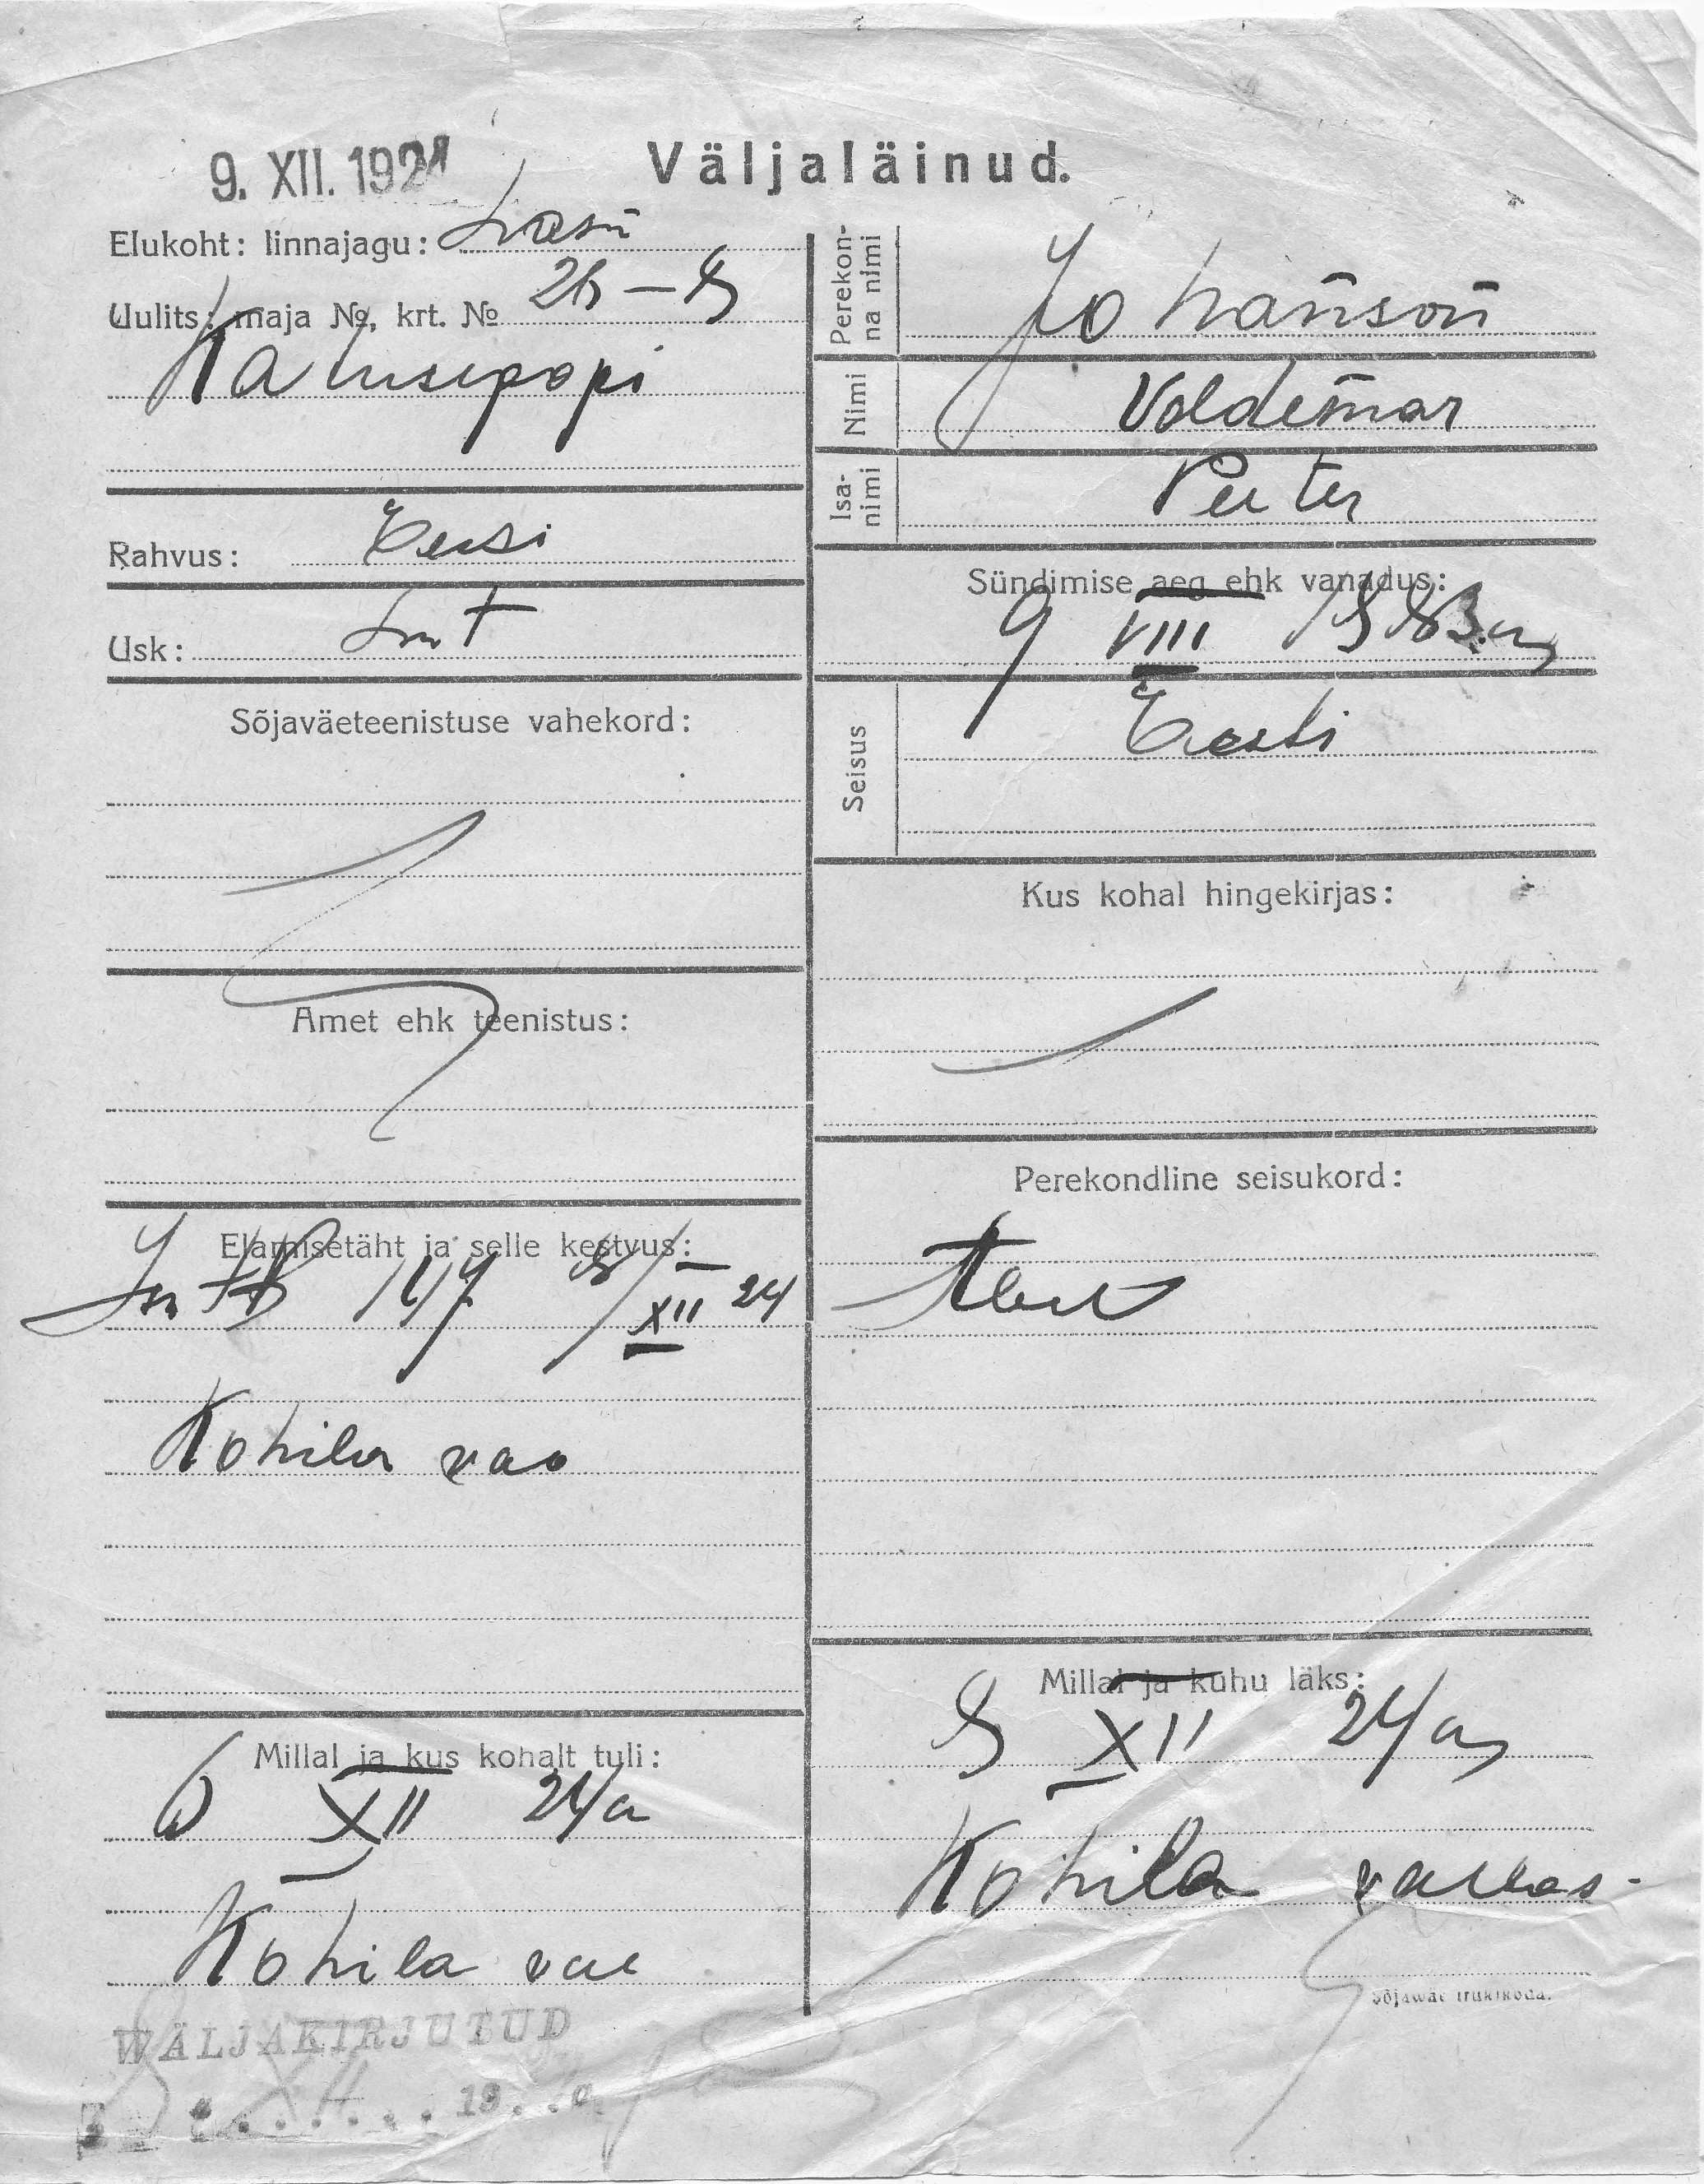 9. XII. 1924
Väljaläinud.
Elukoht: linnajagu:
Uulits: maja №, krt. № 26 – 8
Katusepapi
Rahvus: Eesti
Usk: Lut
Sõjaväeteenistuse vahekord:
Amet ehk teenistus:
Elamisetäht ja selle kestvus:
147 8/XII 24
Kohila
Millal ja kus kohalt tuli:
6 XII 24/a
Kohila
WÄLJAKIRJUTUD
19
Perekonna nimi
Johanson
Nimi
Voldemar
Isanimi
Peeter
Sündimise aeg ehk vanadus:
9 VIII
Seisus
Eesti
Kus kohal hingekirjas:
Perekondline seisukord:
Millal ja kuhu läks:
8 XII 24/a
Kohila
Sõjawäe trükikoda.